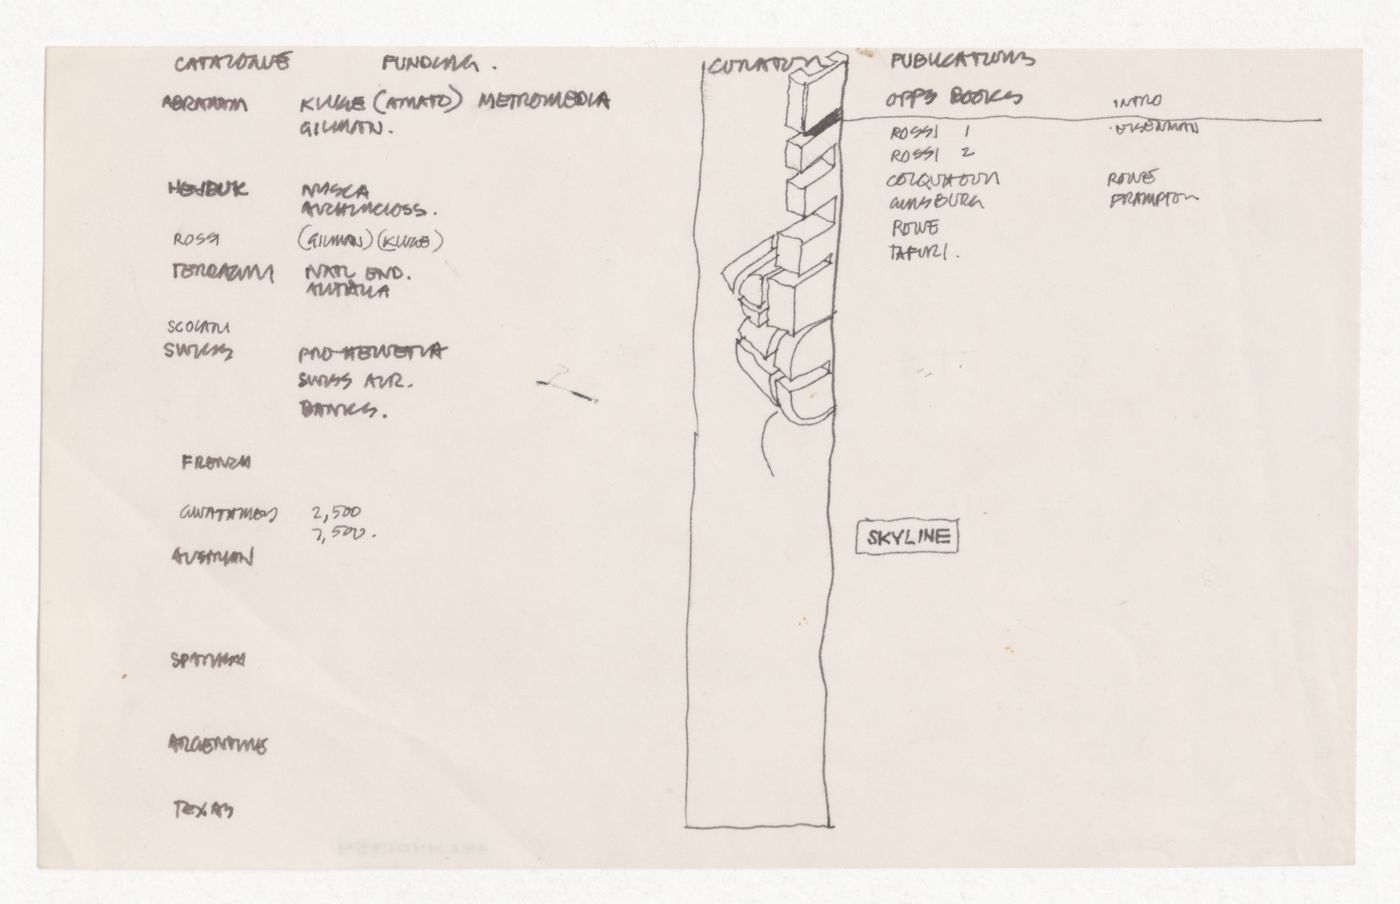 CATALOGUE FUNDING. CURATORS PUBLICATIONS
ABRAHAM KLUGE (AMATO) METROMEDIA
GILMAN.
HEJDUK NYSCA
AUCHINCLOSS.
ROSSI (GILMAN) (KLUGE)
TERRAGNI NATL END.
ALITALIA
SCOLARI
SWISS PRO HELVETIA
SWISS AIR.
BANKS.
FRENCH
GWATHMEY 2,500
7,500.
AUSTRIAN
SPANISH
ARGENTINE
TEXAS
OPPS BOOKS INTRO
ROSSI 1 EISENMAN
ROSSI 2
COLQUHOUN ROWE
GINSBURG FRAMPTON
ROWE
TAFURI.
SKYLINE